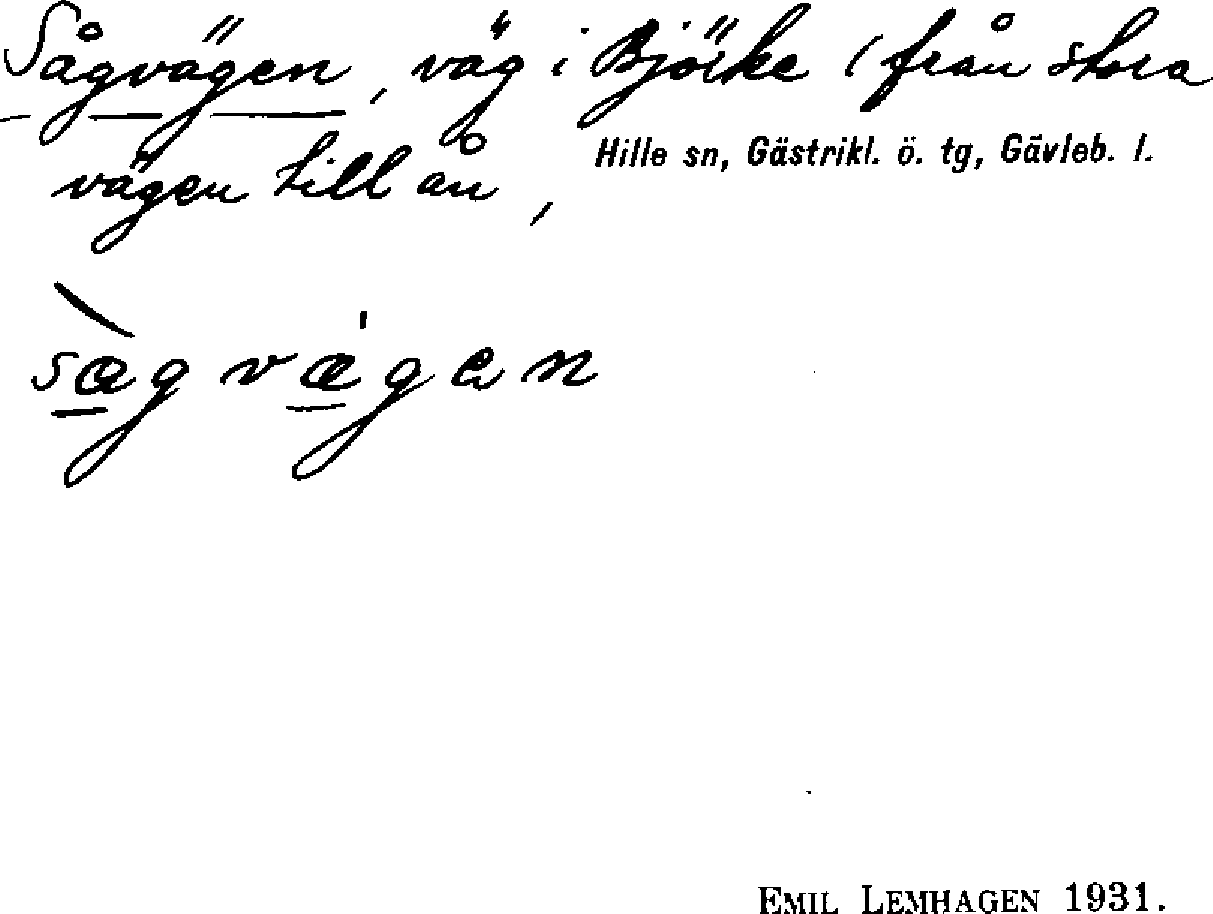 Sågvägen, väg i Björke (från stora
Hille sn, Gästrikl. ö. tg, Gävleb. l.
vägen till ån,
sægvægen
EMIL LEMHAGEN 1931.